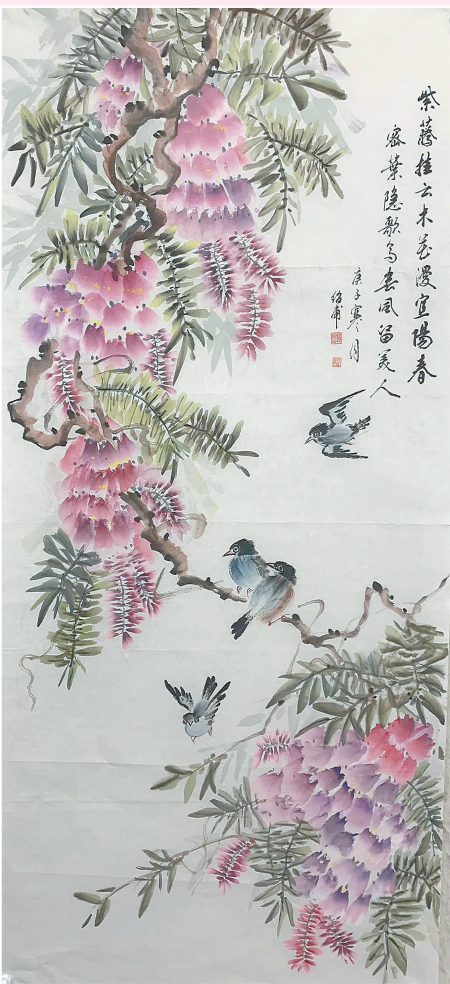 紫藤挂云木花漫宜阳春
密葉隐歌鸟春风留美人
庚子寒月